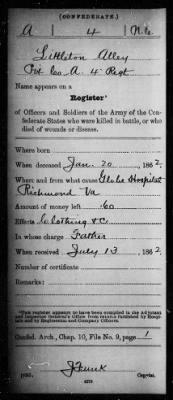 (CONFEDERATE.)
A 4 N.C.
Littleton Alley
Pvt Co A. 4 Regt
Name appears on a
Register*
of Officers and Soldiers of the Army of the Con-
federate States who were killed in battle, or who
died of wounds or disease.
Where born
When deceased Jan. 20, 1862.
Where and from what cause Globe Hospital
Richmond Va
Amount of money left .60
Effects Clothing &c.
In whose charge Father
When received July 13, 1862.
Number of certificate
Remarks:
*This register appears to have been compiled in the Adjutant
and Inspector General's Office from returns furnished by Hospi-
tals and by Regimental and Company Officers.
Confed. Arch., Chap. 10, File No. 9, page 1
Copyist.